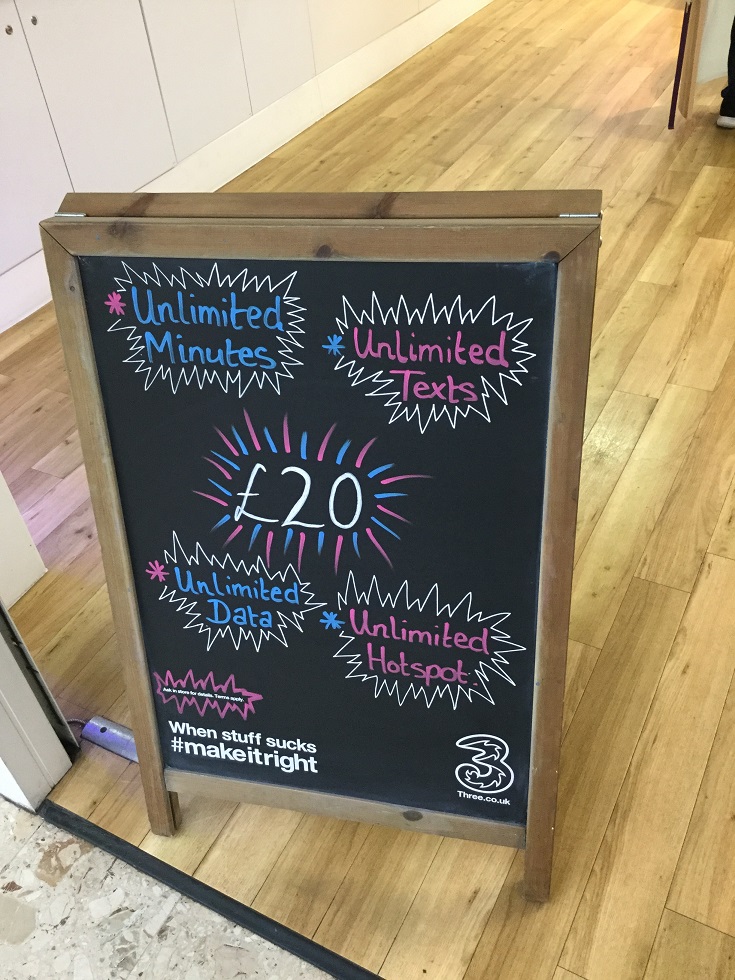 *Unlimited
Minutes
*Unlimited
Texts
£20
*Unlimited
Data
*Unlimited
Hotspot
Ask in store for details. Terms apply.
When stuff sucks
#makeitright
3
Three.co.uk